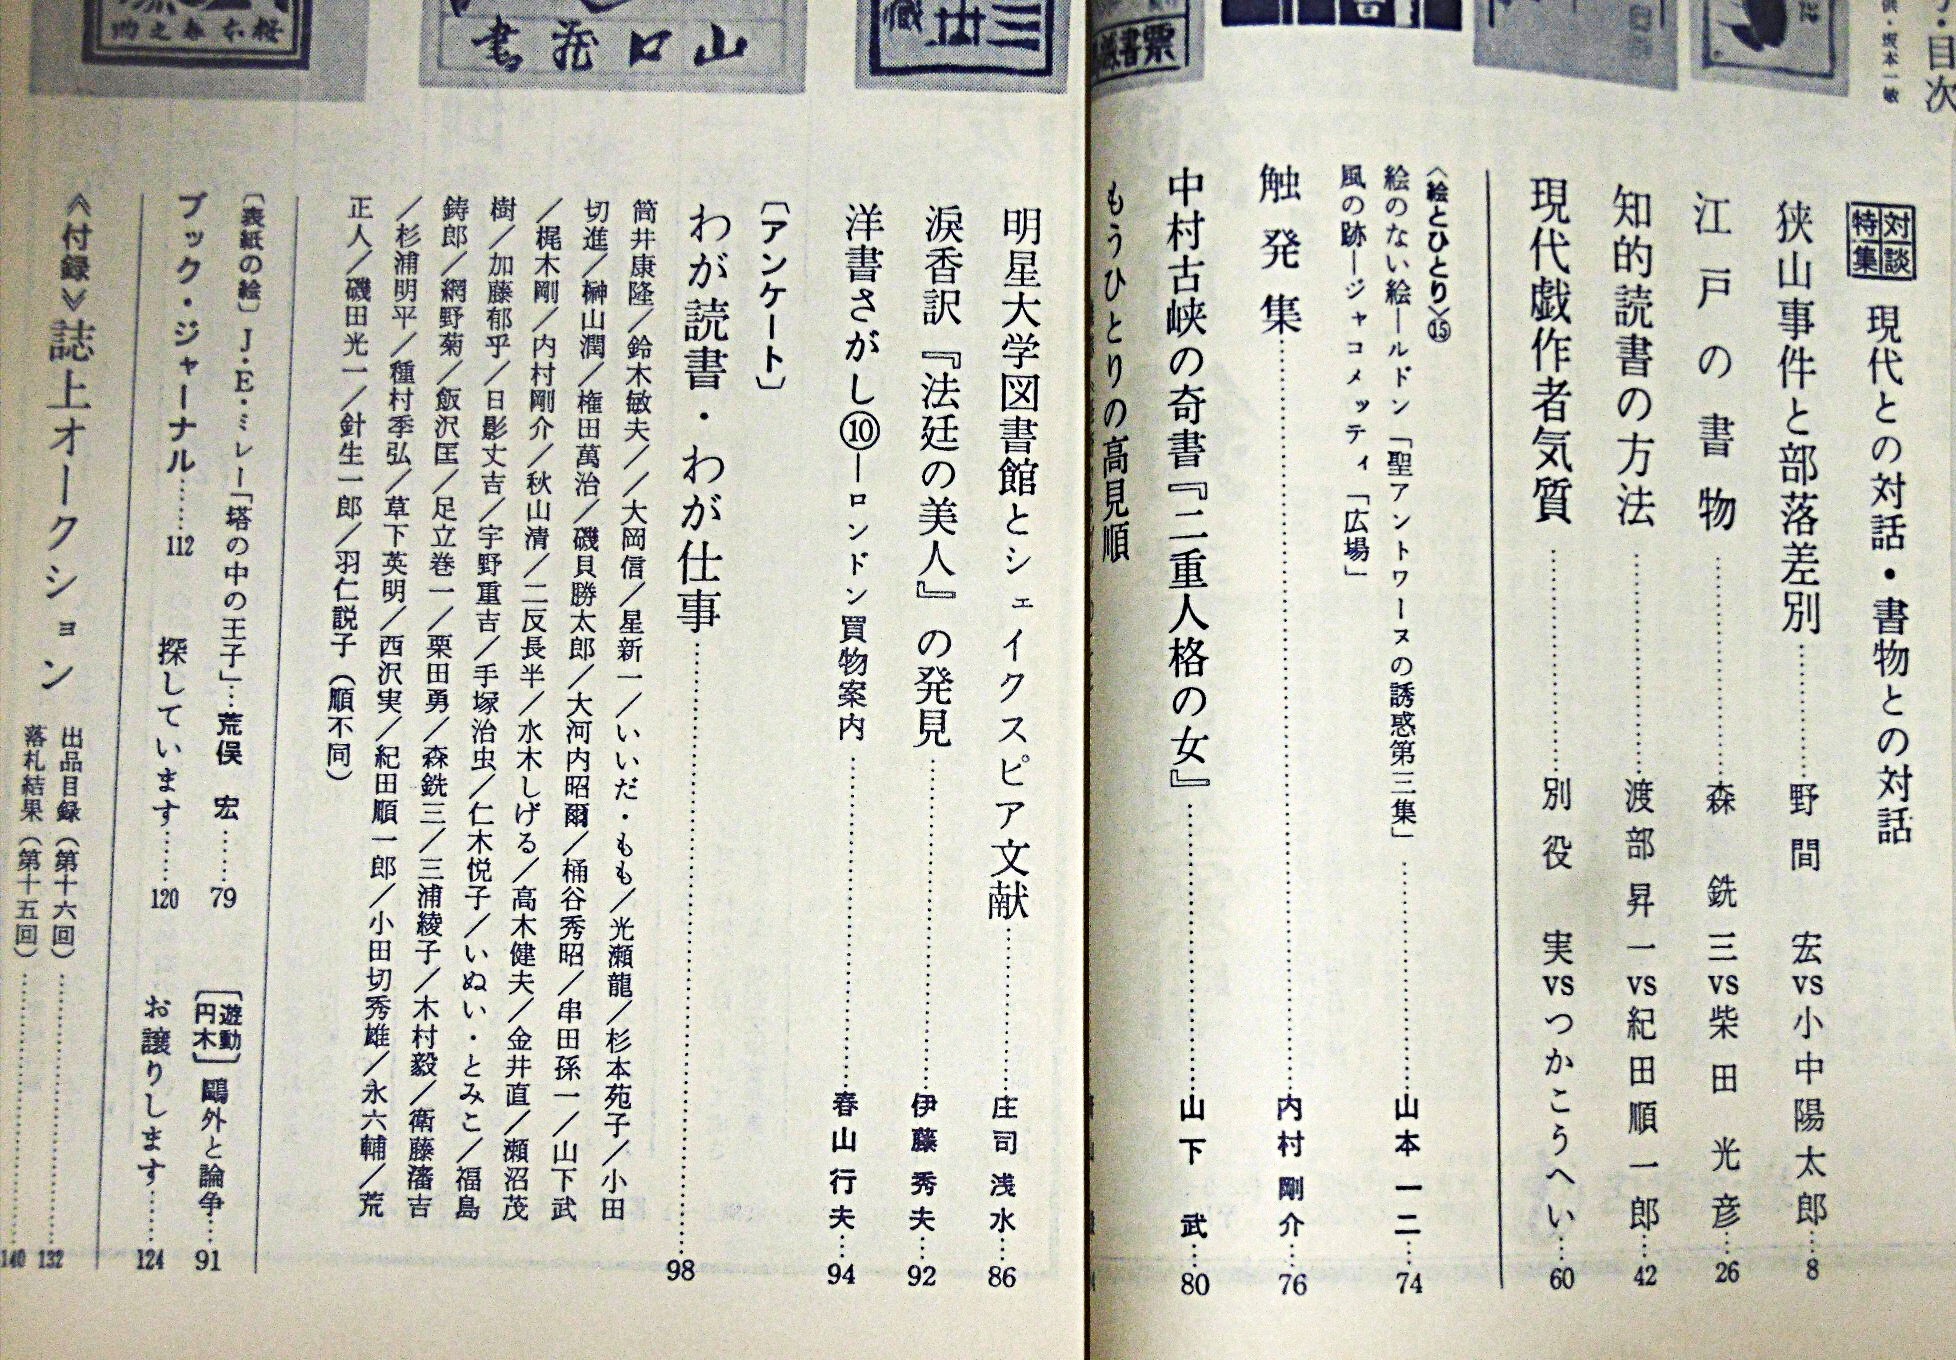 目次
坂本一敏
票書蔵
三廿蔵
山口蔵書
桜本春之助
対談特集 現代との対話・書物との対話
狭山事件と部落差別…………野間 宏vs小中陽太郎……8
江戸の書物…………森 銑三vs柴田光彦……26
知的読書の方法…………渡部昇一vs紀田順一郎……42
現代戯作者気質…………別役 実vsつかこうへい……60
〈絵とひとり〉⑮
絵のない絵―ルドン「聖アントワーヌの誘惑第三集」…………山本一二……74
風の跡―ジャコメッティ「広場」
触発集…………内村剛介……76
中村古峡の奇書『二重人格の女』…………山下 武……80
もうひとりの高見順
明星大学図書館とシェイクスピア文献…………庄司浅水……86
涙香訳『法廷の美人』の発見…………伊藤秀夫……92
洋書さがし⑩―ロンドン買物案内…………春山行夫……94
〔アンケート〕
わが読書・わが仕事…………98
筒井康隆/鈴木敏夫//大岡信/星新一/いいだ・もも/光瀬龍/杉本苑子/小田
切進/榊山潤/権田萬治/磯貝勝太郎/大河内昭爾/桶谷秀昭/串田孫一/山下武
/梶木剛/内村剛介/秋山清/二反長半/水木しげる/高木健夫/金井直/瀬沼茂
樹/加藤郁乎/日影丈吉/宇野重吉/手塚治虫/仁木悦子/いぬい・とみこ/福島
鋳郎/網野菊/飯沢匡/足立巻一/栗田勇/森銑三/三浦綾子/木村毅/衛藤瀋吉
/杉浦明平/種村季弘/草下英明/西沢実/紀田順一郎/小田切秀雄/永六輔/荒
正人/磯田光一/針生一郎/羽仁説子（順不同）
〔表紙の絵〕J・E・ミレー「塔の中の王子」…荒俣 宏……79
〔遊動円木〕鷗外と論争……91
ブック・ジャーナル……112
探しています……120
お譲りします……124
《付録》誌上オークション
出品目録（第十六回）…………132
落札結果（第十五回）…………140